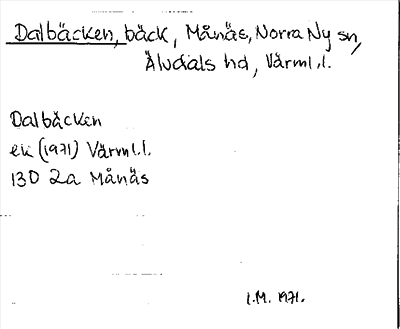 Dalbäcken, bäck, Månäs, Norra Ny sn,
Älvdals hd, Värml.l.
Dalbäcken
ek (1971) Värml.l.
13D 2a Månäs
I.M. 1971.